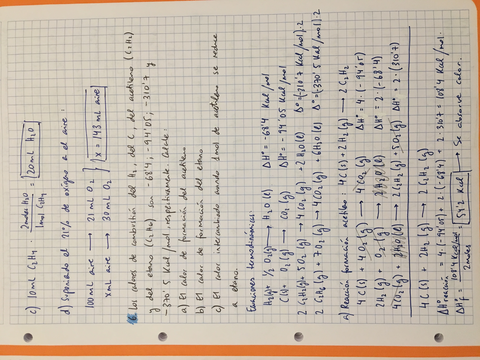 c) 10 mL C₂H₄ · 2 moles H₂O / 1 mol C₂H₄ = 20 mL H₂O
d) Suponiendo el 21% de oxígeno en el aire:
100 mL aire → 21 mL O₂
x mL aire → 30 mL O₂ } x = 143 mL aire
16. Los calores de combustión del H₂, del C, del acetileno (C₂H₂)
y del etano (C₂H₆) son -68'4, -94'05, -310'7 y
-370'5 Kcal/mol, respectivamente. Calcule:
a) El calor de formación del acetileno
b) El calor de formación del etano
c) El calor intercambiado cuando 1 mol de acetileno se reduce
a etano.
Ecuaciones termoquímicas:
H₂(g) + 1/2 O₂(g) → H₂O(l) ΔHº = -68'4 Kcal/mol
C(s) + O₂(g) → CO₂(g) ΔHº = -94'05 Kcal/mol
2 C₂H₂(g) + 5 O₂(g) → 4 CO₂(g) + 2 H₂O(l) Δº = (-310'7 Kcal/mol)·2
2 C₂H₆(g) + 7 O₂(g) → 4 CO₂(g) + 6 H₂O(l) Δº = (-370'5 Kcal/mol)·2
a) Reacción formación acetileno 4 C(s) + 2 H₂(g) → 2 C₂H₂
4 C(s) + 4 O₂(g) → 4 CO₂(g) ΔHº = 4·(-94'05)
2 H₂(g) + O₂(g) → 2 H₂O(l) ΔHº = 2·(-68'4)
4 CO₂(g) + 2 H₂O(l) → 2 C₂H₂(g) + 5 O₂(g) ΔHº = 2·(310'7)
4 C(s) + 2 H₂(g) → 2 C₂H₂(g)
ΔHº reacción = 4·(-94'05) + 2(-68'4) + 2·310'7 = 108'4 Kcal/mol.
ΔHº f = 108'4 Kcal / 2 moles = 54'2 Kcal → Se absorve calor.